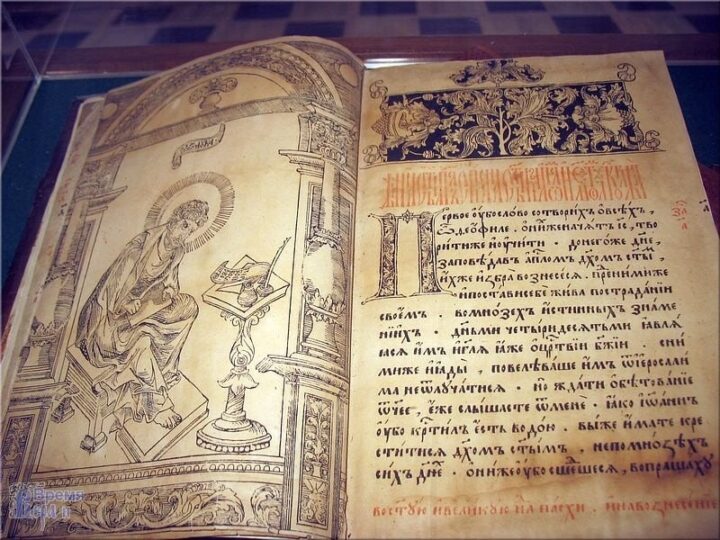 Первое ѹбо слово сотворихъ ѡ всѣхъ,
ѽ ѳеофиле. ѡ нихже начатъ іс҃, тво
рити же и ѹчити. донегоже дн҃е,
заповѣдавъ ап҃лом дх҃омъ ст҃ы,
ихже избра вознесеся. пред ними же
и постави себе жива по страдании
своемъ. во мнозѣхъ истинныхъ знаме
ниихъ. дньми четыридесятьми ꙗвлѧ
ꙗсѧ имъ и гл҃ѧ ꙗже ѡ цр҃твіи бж҃іи. с ни
ми же и ꙗды, повелѣваше имъ ѿ іеросали
ма не ѿлучатисѧ. но ждати ѡбѣтованіе
ѿчее, еже слышасте ѿ мене. ꙗко іѡаннъ
ѹбо крт҃илъ есть водою. вы же имате кре
ститисѧ дх҃омъ ст҃ымъ, не по мнозѣхъ
сихъ дн҃ехъ. ѡни же ѹбо сшедшесѧ, вопрашаху
во ст҃ую и великую пасхи. и на вознесение
Время